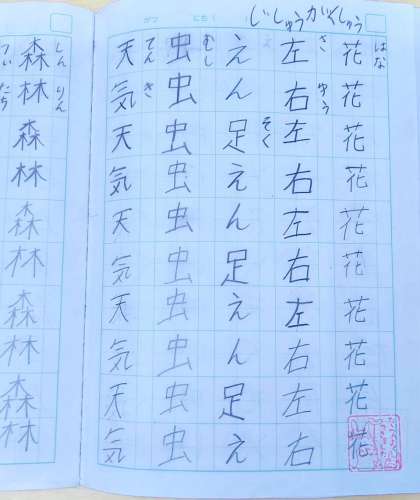 じしゅうがくしゅう
花花花花花花花花花花
はな
左右左右左右左右左右
さゆう
えん足えん足えん足え
そく
虫虫虫虫虫虫虫虫虫虫
むし
天気天気天気天気天気
てんき
森林森林森林森林森林
しんりん
ついたち